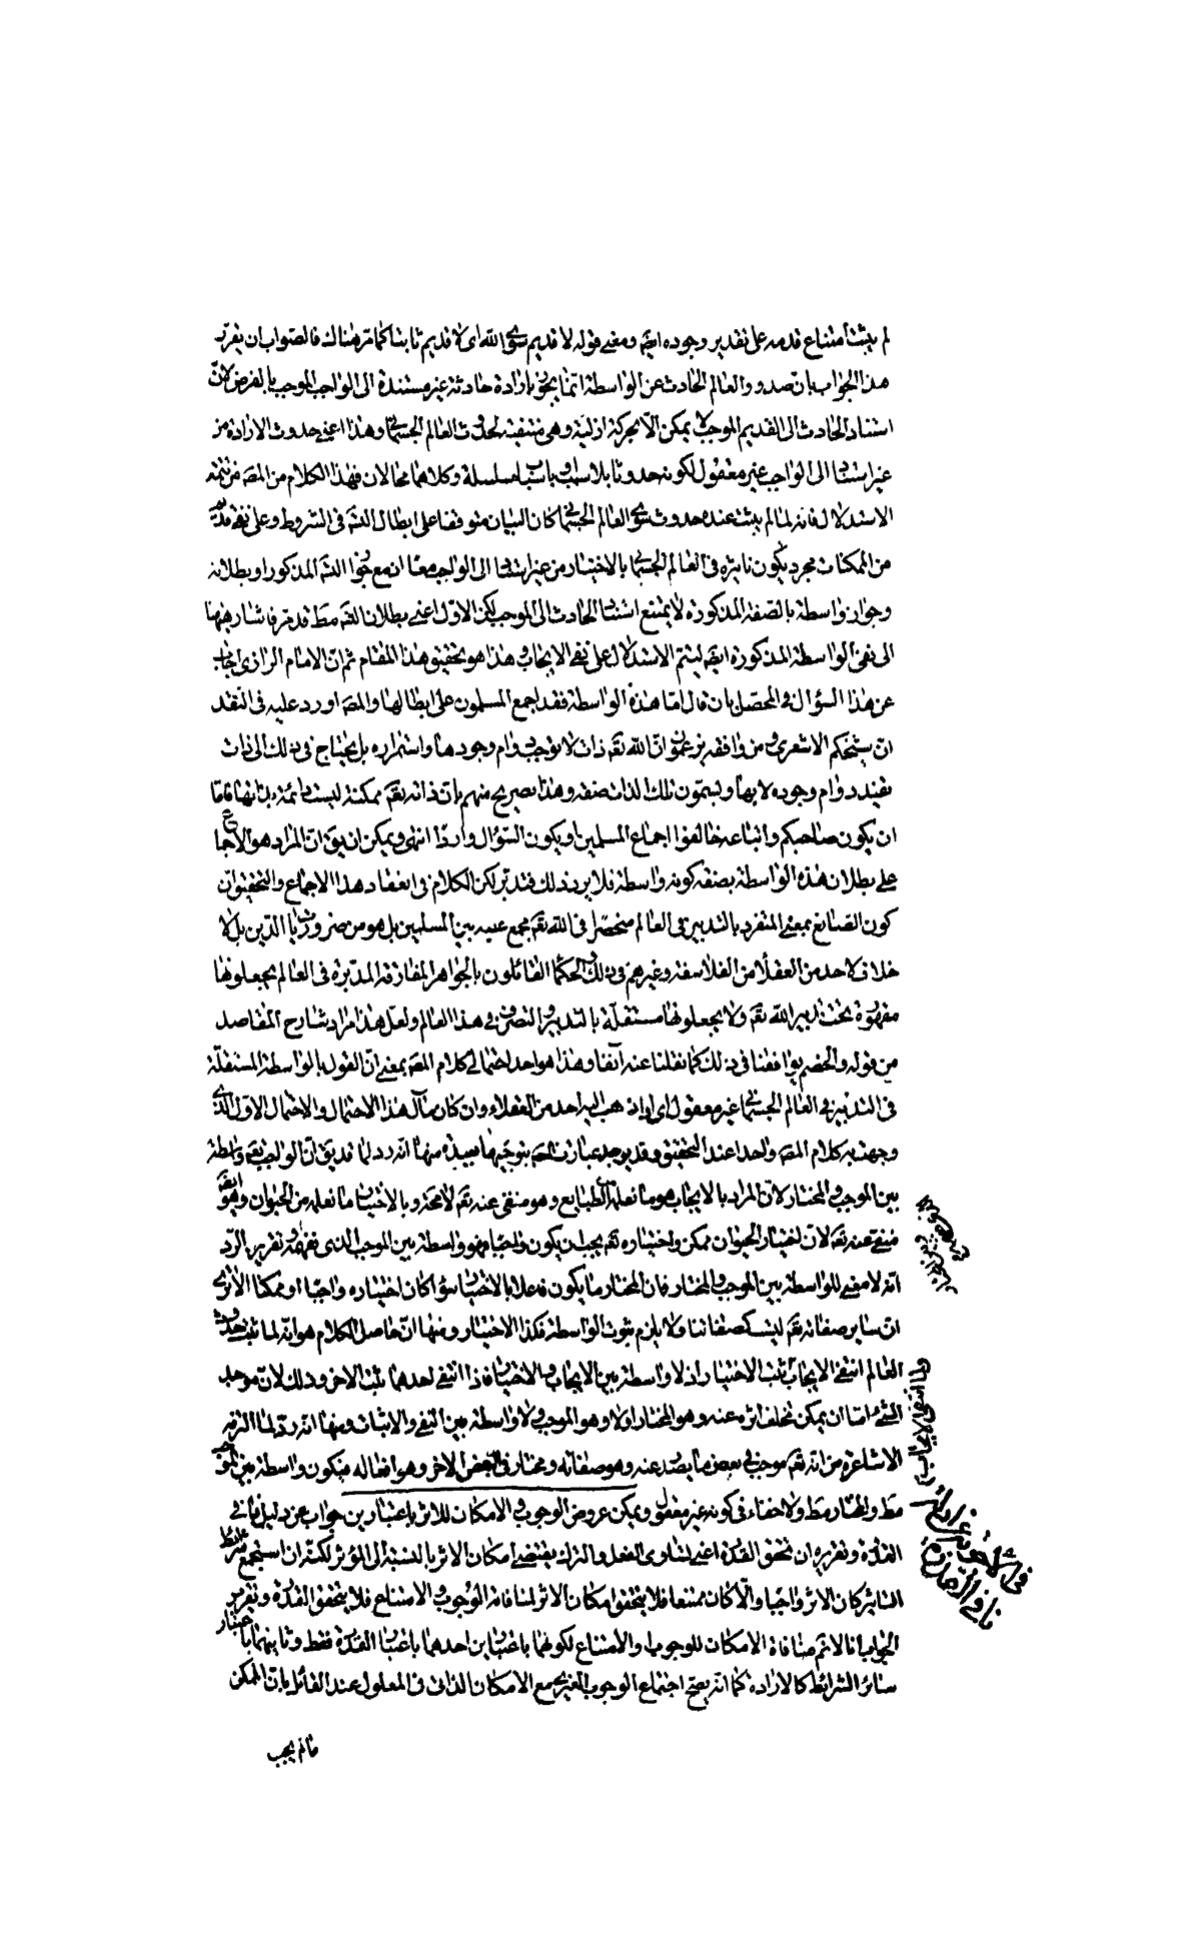 لم يثبت امتناع قدمه على تقدير وجوده ايضم ومعنى قوله لا قديم سوى الله اى لا قديم ثابتا كما مر هناك فالصواب ان يقرر
هذا الجواب بان صدور العالم الحادث عن الواسطة انما يجوز بارادة حادثة غير مستندة الى الواجب الموجب بالفرض لان
استناد الحادث الى القديم الموجب لا يمكن الا بحركة ازلية وهى منتفية لحدوث العالم الجسمانى وهذا اعنى حدوث الارادة من
غير استناد الى الواجب غير معقول لكونه حدوثا بلا سبب او باسباب متسلسلة وكلاهما محالان فهذا الكلام من المصم من تتمة
الاستدلال فانه لما لم يثبت عنده حدوث سوى العالم الجسمانى كان البيان متوقفا على ابطال التسم فى الشروط وعلى نفى قديم
من الممكنات مجرد يكون تاثيره فى العالم الجسمانى بالاختيار من غير استناد الى الواجب معا اذ مع جواز التسم المذكور او بطلانه
وجواز واسطة بالصفة المذكورة لا يمتنع استناد الحادث الى الموجب لكن الاول اعنى بطلان التسم مط قد مر فاشار ههنا
الى نفى الواسطة المذكورة ايضم ليتم الاستدلال على نفى الايجاب هذا هو تحقيق هذا المقام ثم ان الامام الرازى اجاب
عن هذا السؤال فى المحصل بان قال اما هذه الواسطة فقد اجمع المسلمون على ابطالها والمصم اورد عليه فى النقد
ان شيخكم الاشعرى ومن وافقه يزعمون ان الله تعم ذات لا توجب دوام وجودها واستمراره بل يحتاج فى ذلك الى ذات
يفيد دوام وجوده لا بها ويسمون تلك الذات صفة وهذا تصريح منهم بان ذاته تعم ممكنة ليست دائمة بذاتها فاما
ان يكون صاحبكم واتباعه خالفوا اجماع المسلمين او يكون السؤال واردا انتهى ويمكن ان يق ان المراد هو الاجماع
على بطلان هذه الواسطة بصفة كونه واسطة فلا يرد ذلك فتدبر لكن الكلام فى انعقاد هذا الاجماع والتحقيق ان
كون الصانع بمعنى المتفرد بالتدبير فى العالم منحصرا فى الله تعم مجمع عليه بين المسلمين بل هو من ضروريات الدين بل لا
خلاف لاحد من العقلاء من الفلاسفة وغيرهم فى ذلك والحكماء القائلون بالجواهر المفارقة المدبرة فى العالم يجعلونها
مقهورة تحت تدبير الله تعم ولا يجعلونها مستقلة بالتدبير والتصرف فى هذا العالم ولعل هذا مراد شارح المقاصد
من قوله والخصم يوافقنا فى ذلك كما نقلنا عنه آنفا وهذا هو احد احتمالى كلام المصم بمعنى ان القول بالواسطة المستقلة
فى التدبير فى العالم الجسمانى غير معقول اى لم يذهب اليه احد من العقلاء وان كان مآل هذا الاحتمال والاحتمال الاول الذى
وجهت به كلام المصم واحدا عند التحقيق وقد يوجه عبارة المصم بتوجيهات بعيدة منها انه رد لما قد يق ان الواجب تعم واسطة
بين الموجب والمختار لان المراد بالايجاب هو ما نعلم من الطبايع وهو منفى عنه تعم لا محة وبالاختيار ما نعلم من الحيوان وهو ايضم
منفى عنه تعم لان اختيار الحيوان ممكن واختياره تعم يجب ان يكون واجبا فهو واسطة بين الموجب الذى نفهمه وتقرير الرد
انه لا معنى للواسطة بين الموجب والمختار فان المختار ما يكون فاعلا بالاختيار سواء كان اختياره واجبا او ممكنا الا ترى
ان ساير صفاته تعم ليست كصفاتنا ولا يلزم ثبوت الواسطة فكذا الاختيار ومنها ان حاصل الكلام هو انه لما ثبت حدوث
العالم انتفى الايجاب ثبت الاختيار اذ لا واسطة بين الايجاب والاختيار فاذا انتفى احدهما ثبت الاخر وذلك لان موجد
الشئ اما ان يمكن تخلف اثره عنه وهو المختار او لا وهو الموجب ولا واسطة بين النفى والاثبات ومنها انه رد لما التزمه
الاشاعرة من انه تعم موجب فى بعض ما يصدر عنه وهو صفاته ومختار فى البعض الاخر وهو افعاله فيكون واسطة بين الموجب
مط والمختار مط ولا خفاء فى كونه غير معقول ويمكن عروض الوجوب والامكان للاثر باعتبارين جواب عن دليل نافى
القدرة وتقريره ان تحقق القدرة اعنى تساوى الفعل والترك يقتضى امكان الاثر بالنسبة الى المؤثر لكنه ان استجمع شرايط
التاثير كان الاثر واجبا والا كان ممتنعا فلا يتحقق امكان الاثر لمنافاته الوجوب والامتناع فلا يتحقق القدرة وتقرير
الجواب انا لا نم منافاة الامكان للوجوب والامتناع لكونهما باعتبارين احدهما باعتبار القدرة فقط وثانيهما باعتبار
سائر الشرائط كالارادة كما انه يصح اجتماع الوجوب بالغير مع الامكان الذاتى فى المعلول عند القائل بان الممكن
هذا انتفاء الايجاب
فى الجواب عن دليل
نافى القدرة
ما لم يجب